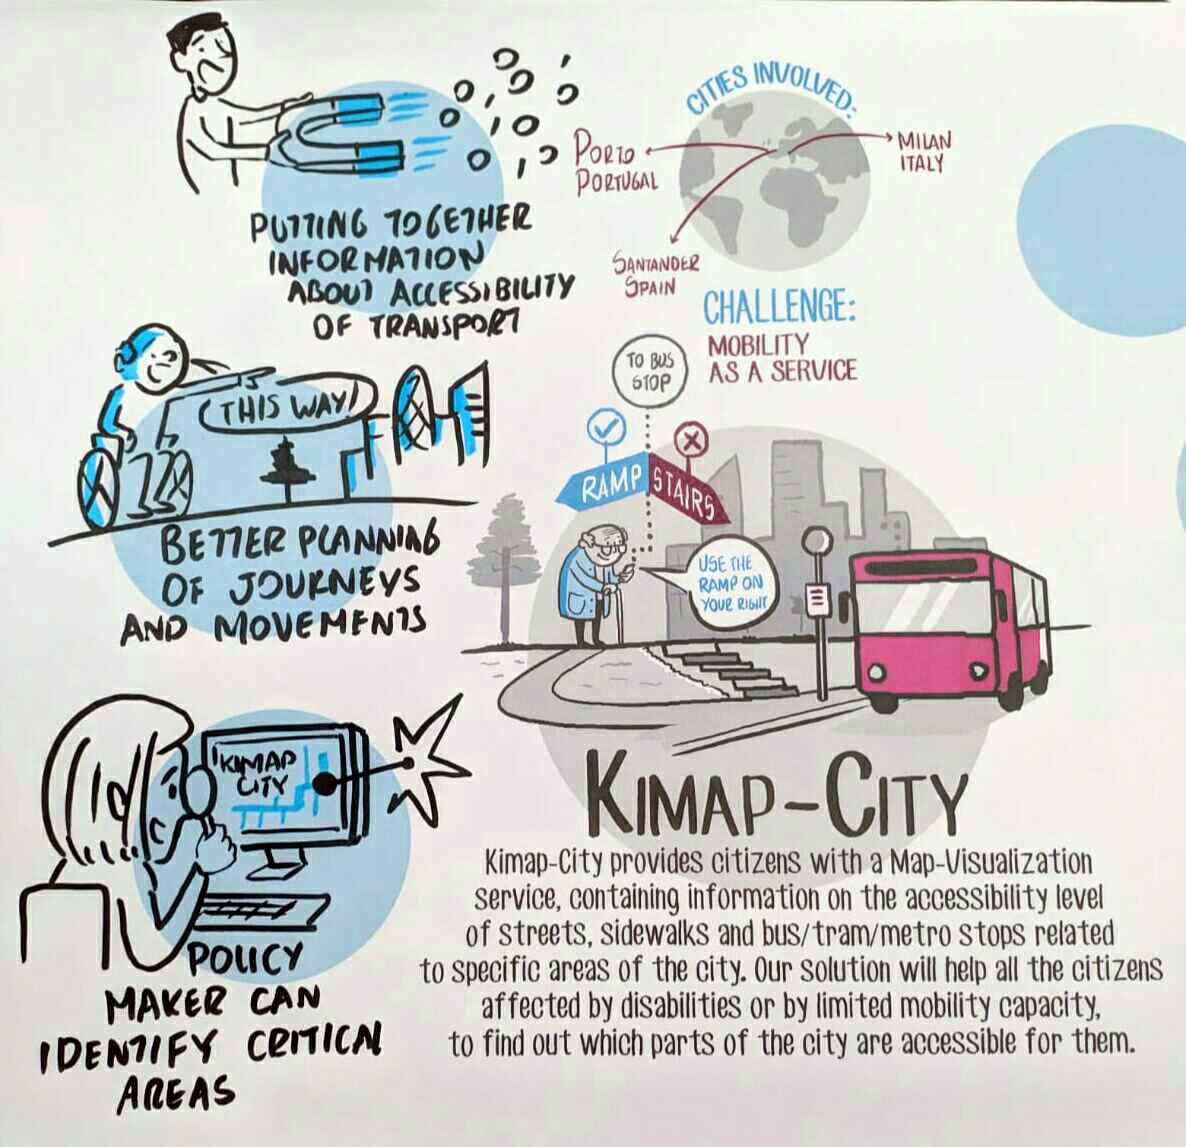 PUTTING TOGETHER
INFORMATION
ABOUT ACCESSIBILITY
OF TRANSPORT
THIS WAY!
BETTER PLANNING
OF JOURNEYS
AND MOVEMENTS
KIMAP
CITY
POLICY
MAKER CAN
IDENTIFY CRITICAL
AREAS
CITIES INVOLVED:
PORTO
PORTUGAL
MILAN
ITALY
SANTANDER
SPAIN
CHALLENGE:
MOBILITY
AS A SERVICE
TO BUS
STOP
RAMP
STAIRS
USE THE
RAMP ON
YOUR RIGHT
KIMAP-CITY
Kimap-City provides citizens with a Map-Visualization
service, containing information on the accessibility level
of streets, sidewalks and bus/tram/metro stops related
to specific areas of the city. Our solution will help all the citizens
affected by disabilities or by limited mobility capacity,
to find out which parts of the city are accessible for them.